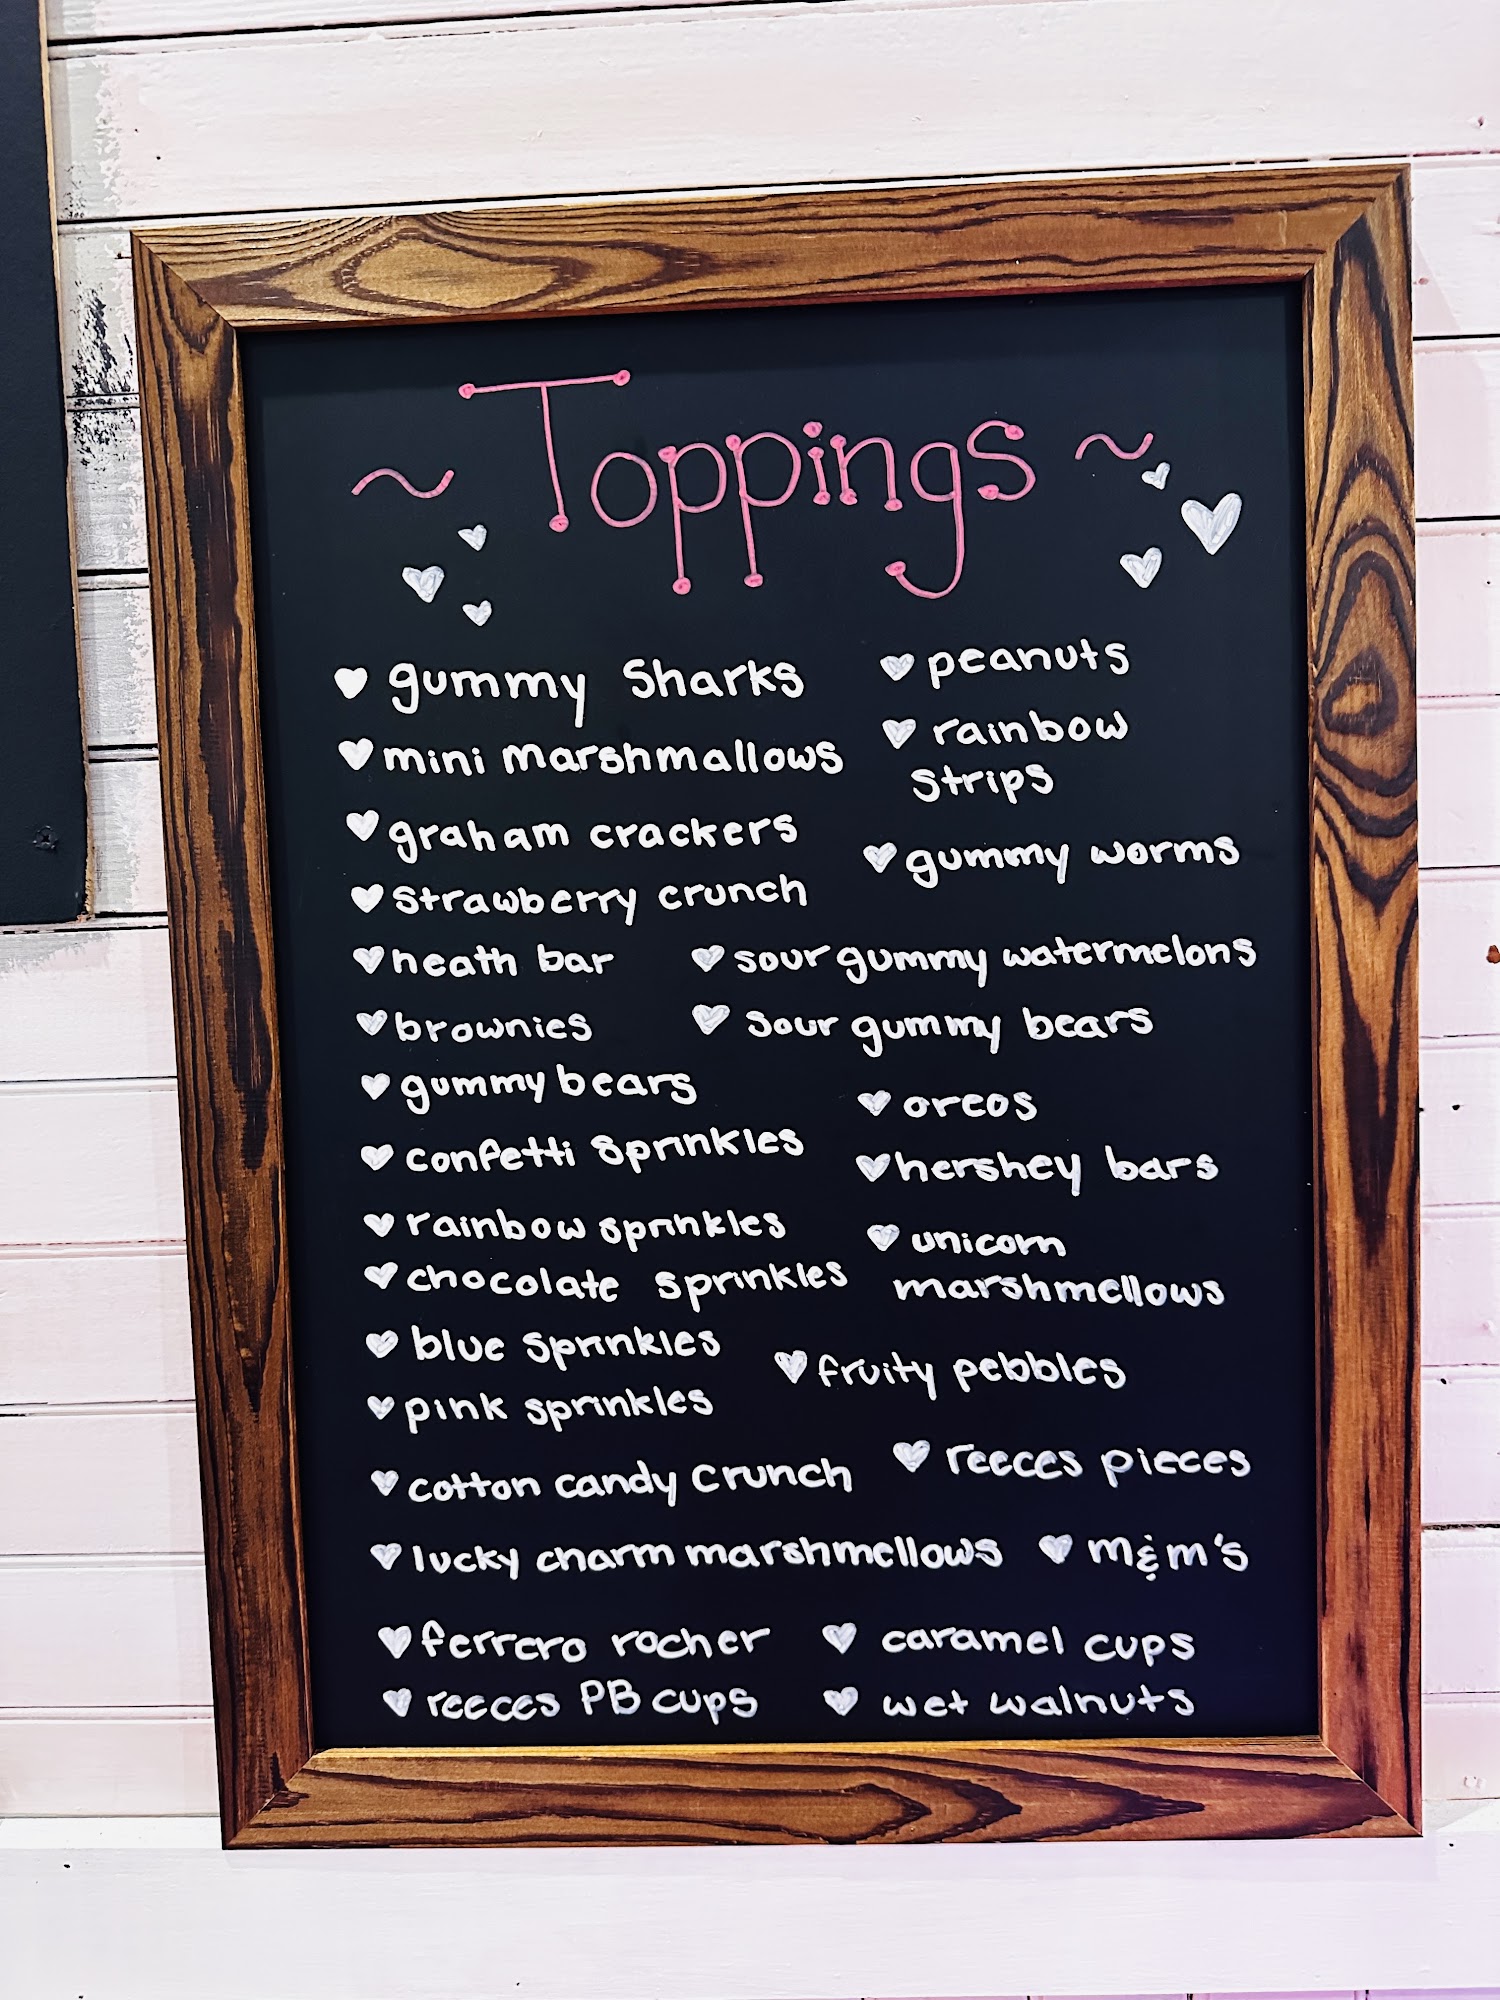 ~ Toppings ~
gummy sharks
mini marshmallows
graham crackers
strawberry crunch
heath bar
brownies
gummy bears
confetti sprinkles
rainbow sprinkles
chocolate sprinkles
blue sprinkles
pink sprinkles
cotton candy crunch
lucky charm marshmellows
ferrero rocher
reeces PB cups
peanuts
rainbow
strips
gummy worms
sour gummy watermelons
sour gummy bears
oreos
hershey bars
unicorn
marshmellows
fruity pebbles
reeces pieces
m&m's
caramel cups
wet walnuts